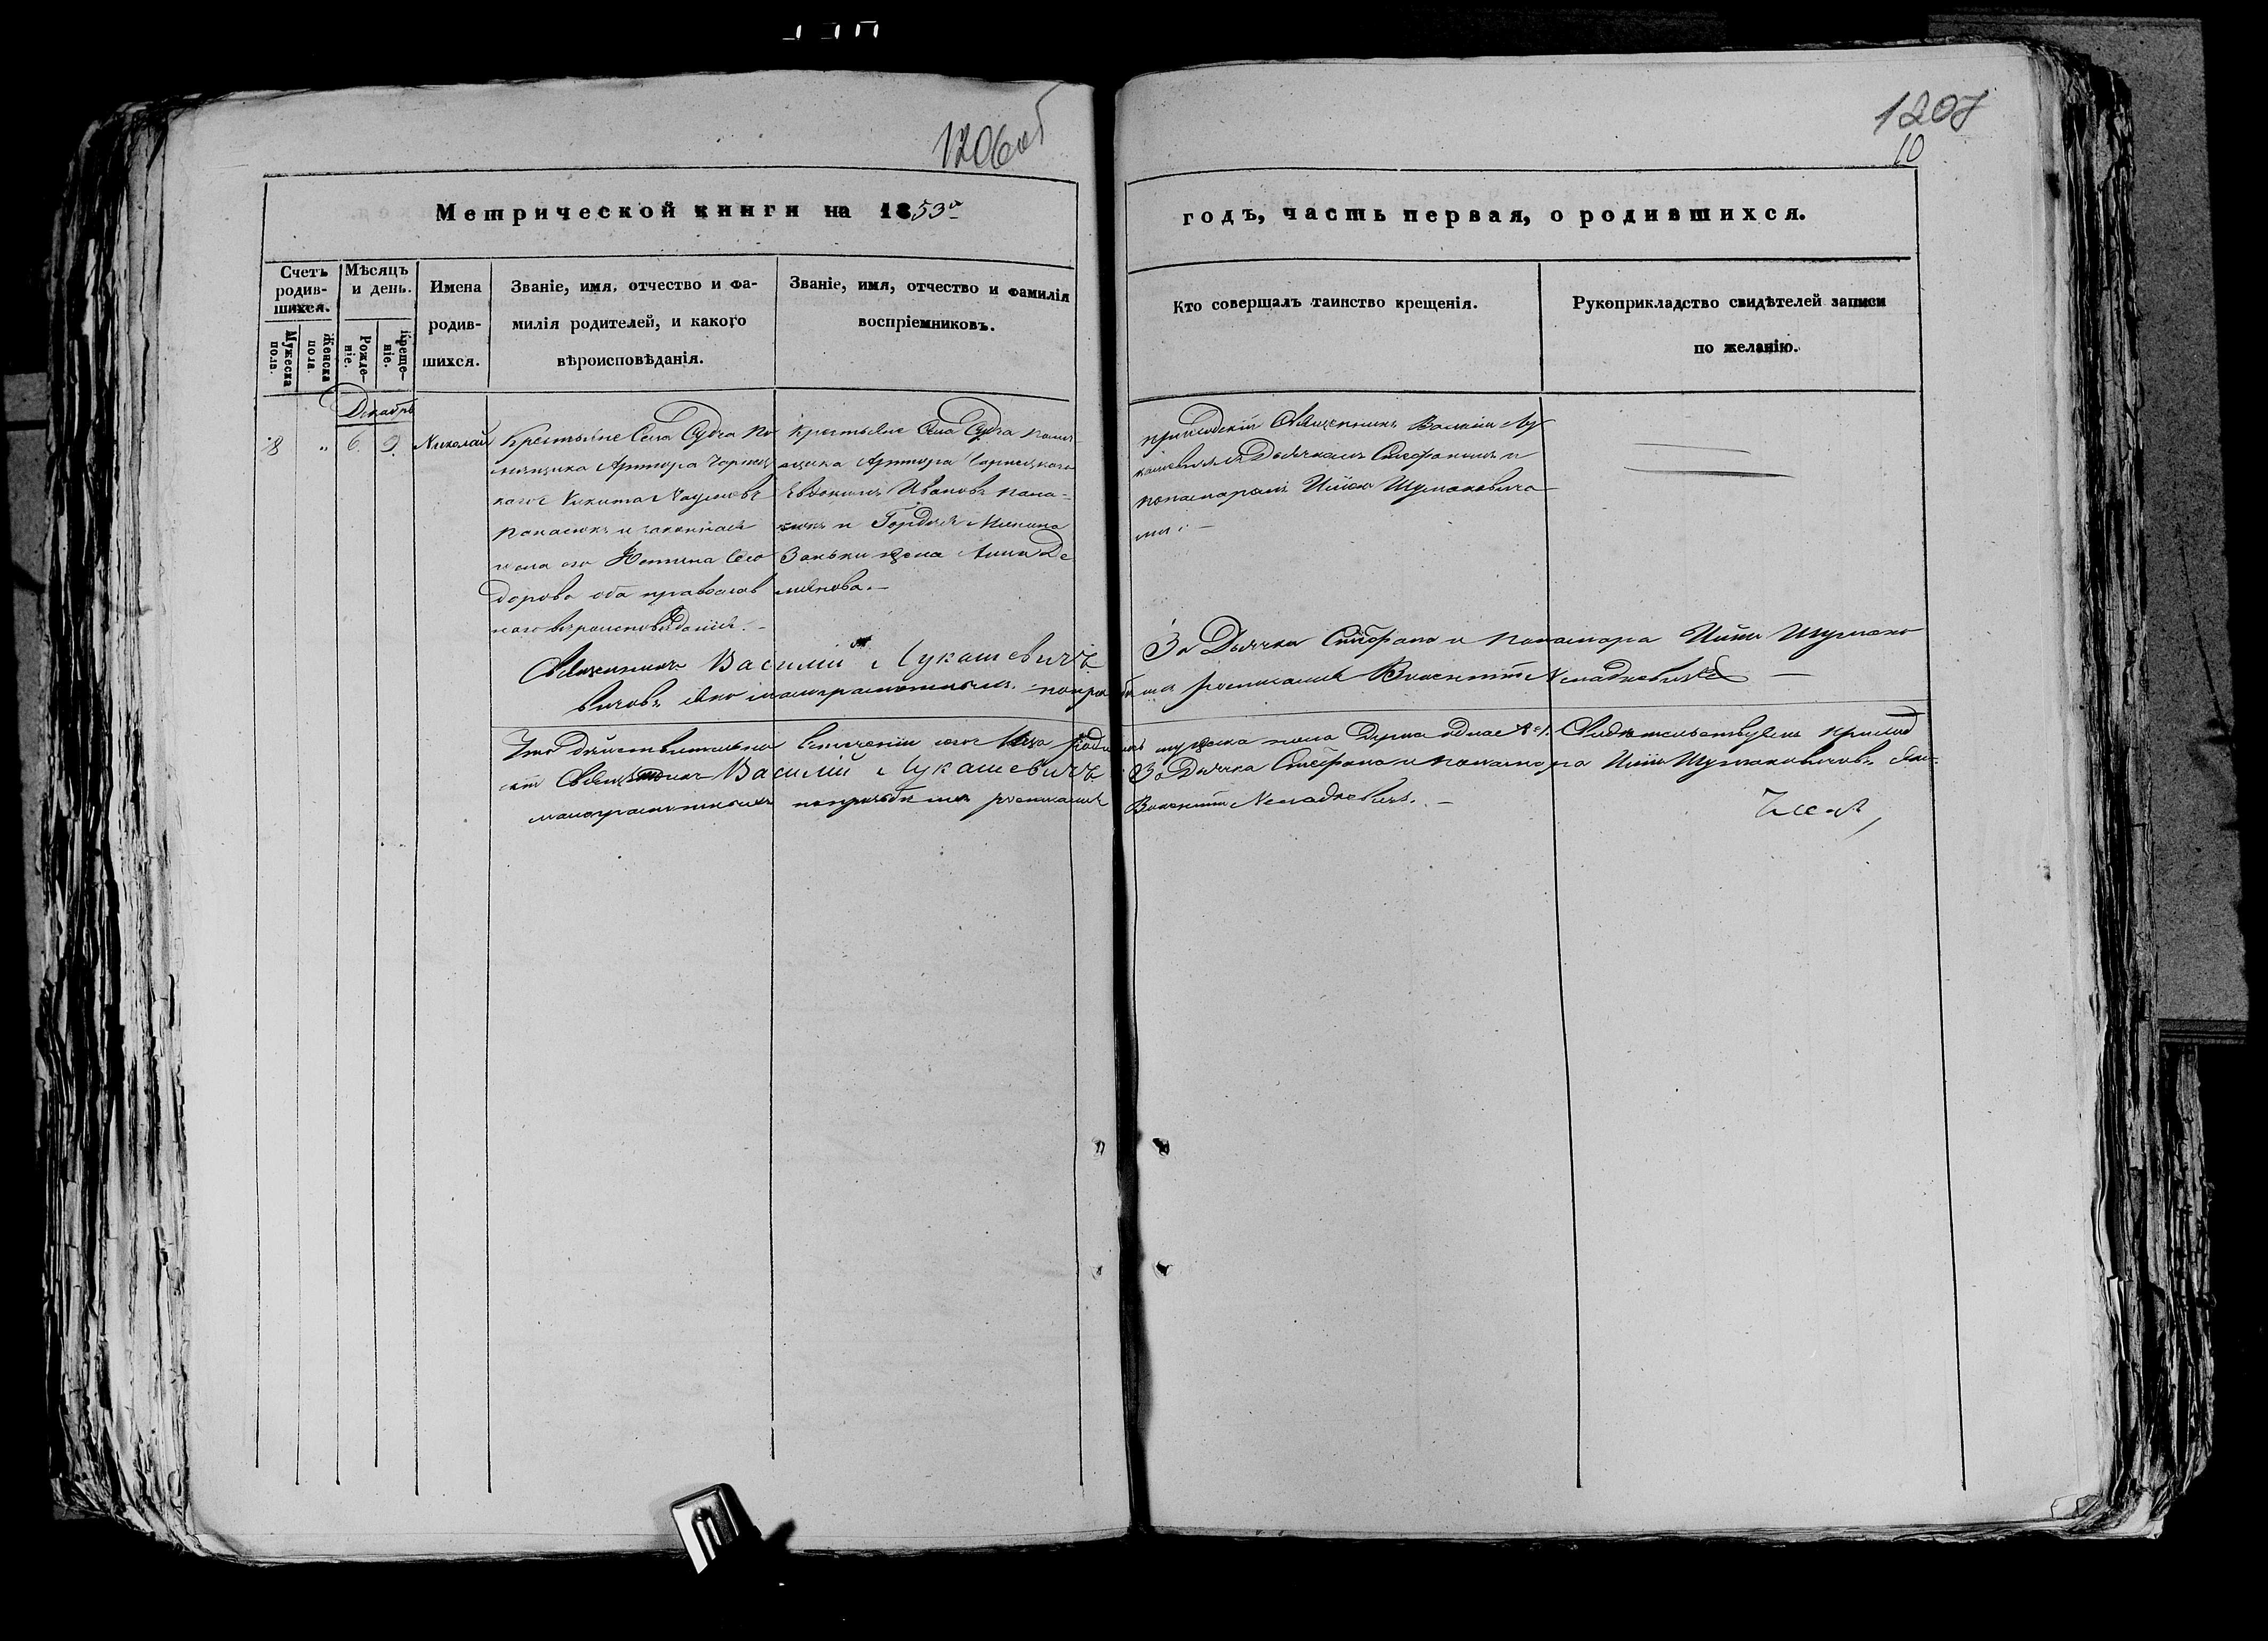 1206об
1207
10
Метрической книги на 1853й
годъ, часть первая, о родившихся.
Счетъ родив-шихся.
Мужеска пола.
Женска пола.
Мѣсяцъ и день.
Рожде-ніе.
Креще-ніе.
Имена родив-шихся.
Званіе, имя, отчество и фа-
милія родителей, и какого
вѣроисповѣданія.
Званіе, имя, отчество и фамилія
воспріемниковъ.
Кто совершалъ таинство крещенія.
Рукоприкладство свидѣтелей записи
по желанію.
Декабрь
18 " 6. 9. Николай
Крестьяне Села Судча по
мещика Артора
Никита Наумовъ
Панасюкъ и законная
жена его Устина Ѳео
дорова оба православ
наго вѣроисповѣданія.
Крестьяне Села Судча помѣ-
щика Артора
Евдокимъ Ивановъ Пана-
сюкъ и Гордѣя Минина
Заньки жена Анна Де
мянова.
Приходскій Священникъ Василій Лу
кашевичъ съ Дьячкомъ Стефаномъ и
понамаремъ Шумаковича
ми.
Священникъ Василій Лукашевичъ
За Дьячка Стефана и понамаря Шумако
вичовъ яко малограмотныхъ по прозьбѣ ихъ росписался Викентій
Что действительно въ теченіи сего года родилось мужеска пола Свидѣтельствуемъ приход
скій Священникъ Василій Лукашевичъ За Дьячка Стефана и понамаря Шумаковичовъ яко
малограмотныхъ по прозьбѣ ихъ росписался Викентій